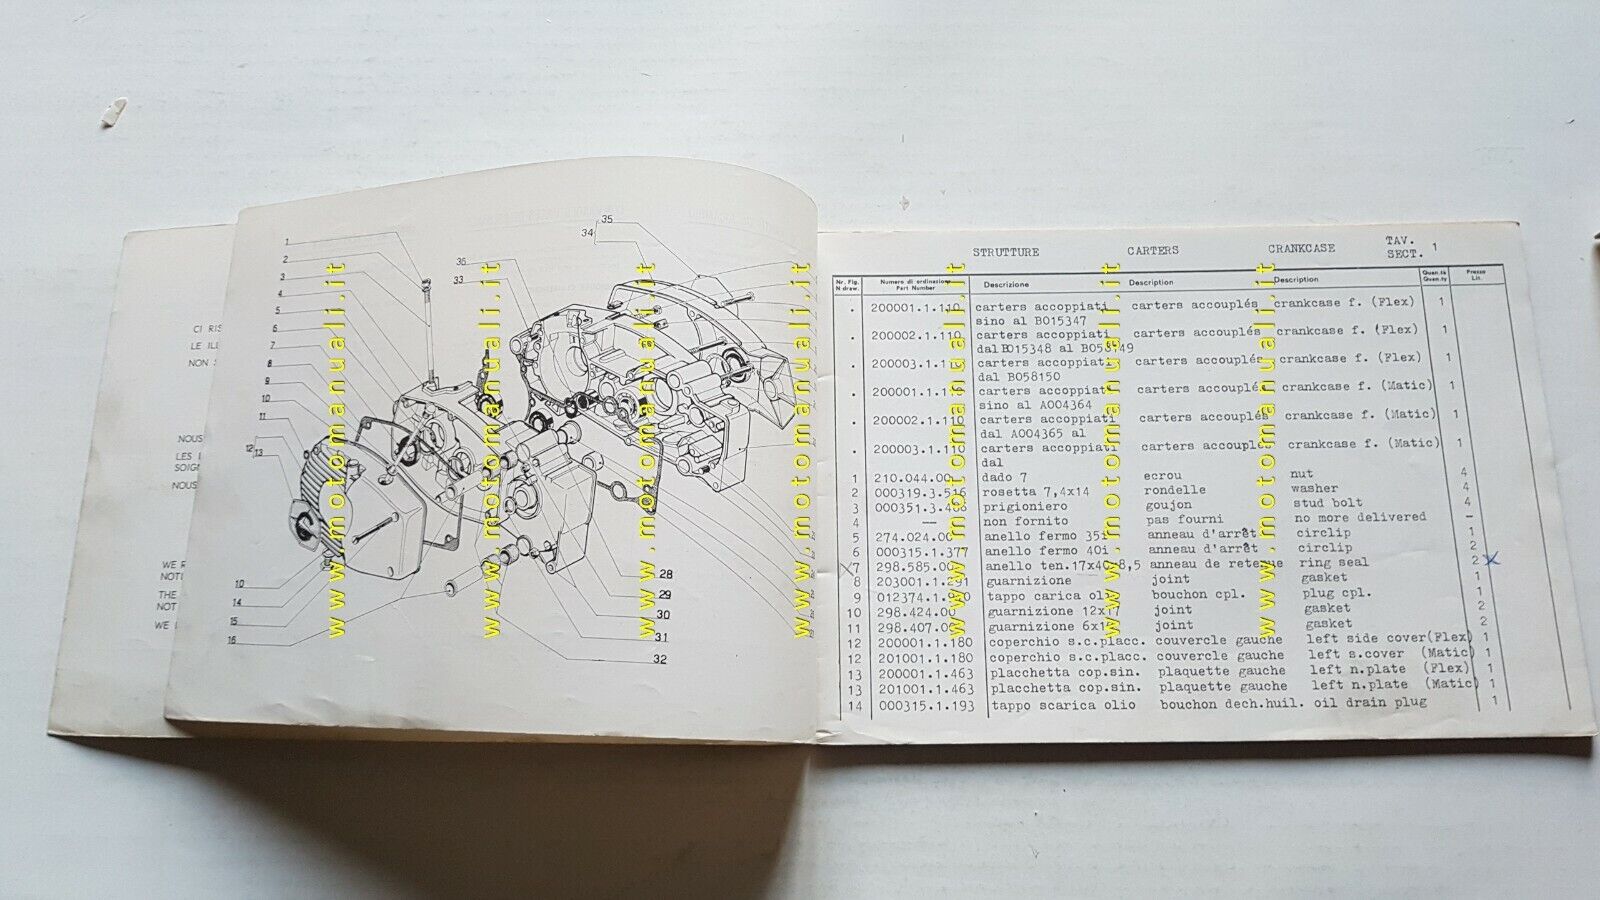 CI RIS
LE ILL
NON S
NOUS
LES I
SOIG
NOUS
WE R
NOTI
THE
NOT
WE
1
2
3
4
5
6
7
8
9
10
11
12
13
10
14
15
16
36
33
34
35
28
29
30
31
32
www.motomanuali.it
www.motomanuali.it
www.motomanuali.it
www.motomanuali.it
www.motomanuali.it
www.motomanuali.it
www.motomanuali.it
STRUTTURE CARTERS CRANKCASE TAV. SECT. 1
Nr. Fig. N draw. Numero di ordinazione Part Number Descrizione Description Description Quan.tà Quan.ty Prezzo Lit.
. 200001.1.110 carters accoppiati carters accouplés crankcase f. (Flex) 1
sino al B015347
. 200002.1.110 carters accoppiati carters accouplés crankcase f. (Flex) 1
dal B015348 al
. 200003.1.110 carters accoppiati carters accouplés crankcase f. (Flex) 1
dal B058150
. 200001.1.110 carters accoppiati carters accouplés crankcase f. (Matic) 1
sino al A004364
. 200002.1.110 carters accoppiati carters accouplés crankcase f. (Matic) 1
dal A004365 al
. 200003.1.110 carters accoppiati carters accouplés crankcase f. (Matic) 1
dal
1 210.044.00 dado 7 ecrou nut 4
2 000319.3.516 rosetta 7,4x14 rondelle washer 4
3 000351.3.468 prigioniero goujon stud bolt 4
4 — non fornito pas fourni no more delivered –
5 274.024.00 anello fermo 35i anneau d'arrêt circlip 1
6 000315.1.377 anello fermo 40i anneau d'arrêt circlip 2
7 298.585.00 anello ten.17x40x8,5 anneau de retenue ring seal 2 x
8 203001.1.291 guarnizione joint gasket 1
9 012374.1.990 tappo carica olio bouchon cpl. plug cpl. 1
10 298.424.00 guarnizione 12x17 joint gasket 2
11 298.407.00 guarnizione joint gasket 2
12 200001.1.180 coperchio s.c.placc. couvercle gauche left side cover(Flex) 1
12 201001.1.180 coperchio s.c.placc. couvercle gauche left s.cover (Matic) 1
13 200001.1.463 placchetta cop.sin. plaquette gauche left n.plate (Flex) 1
13 201001.1.463 placchetta cop.sin. plaquette gauche left n.plate (Matic) 1
14 000315.1.193 tappo scarica olio bouchon dech.huil. oil drain plug 1